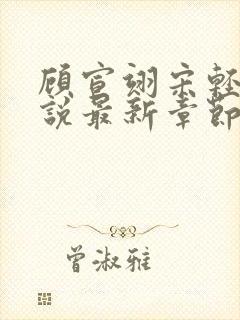 顾宣翊宋轻
说最新章节
曾淑雅